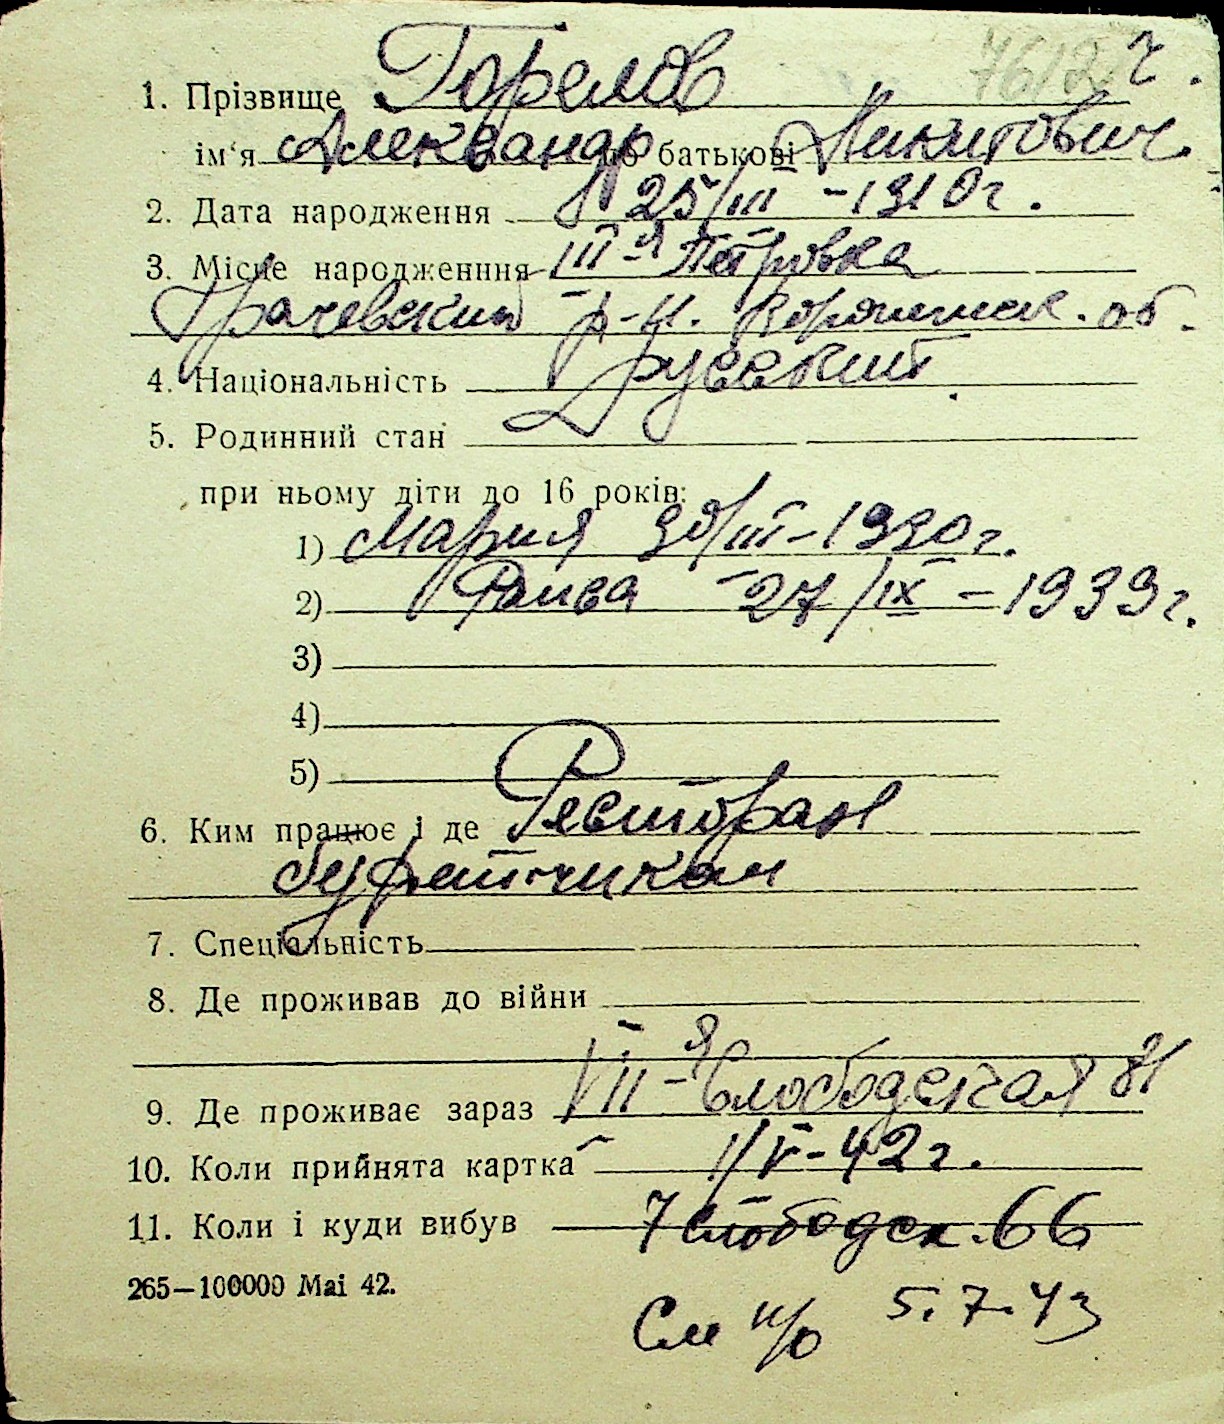 7612 г.
1. Прізвище Горелов
ім'я Александр по батькові Никитович
2. Дата народження 25/III – 1910 г.
3. Місце народженння III-я Петровка
Грачевский р-н. Воронежск. об.
4. Національність Русский
5. Родинний стан
при ньому діти до 16 років:
1) Мария 30/III – 1930 г.
2) Раиса 27/IX – 1939 г.
3)
4)
5)
6. Ким працює і де Ресторан
буфетчикам
7. Спеціальність
8. Де проживав до війни
9. Де проживає зараз VII-я Слободская 81
10. Коли прийнята картка 1/V – 42 г.
11. Коли і куди вибув 7 Слободск. 66
265—100000 Mai 42.
См н/о 5.7.43